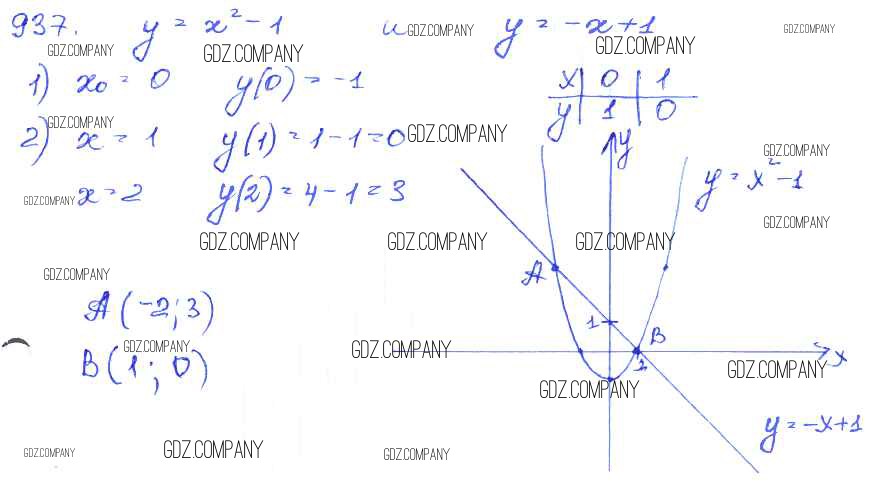 937. y = x² - 1 и y = -x+1
GDZ.COMPANY GDZ.COMPANY GDZ.COMPANY GDZ.COMPANY GDZ.COMPANY
1) x₀ = 0 y(0) = -1
x | 0 | 1
y | 1 | 0
GDZ.COMPANY GDZ.COMPANY
2) x = 1 y(1) = 1-1=0
y
GDZ.COMPANY
y = x²-1
GDZ.COMPANY x=2 y(2) = 4-1=3
GDZ.COMPANY
GDZ.COMPANY GDZ.COMPANY GDZ.COMPANY
GDZ.COMPANY
A
A(-2; 3)
1
B
GDZ.COMPANY GDZ.COMPANY
B(1; 0)
1
x
GDZ.COMPANY
GDZ.COMPANY
y = -x+1
GDZ.COMPANY GDZ.COMPANY GDZ.COMPANY